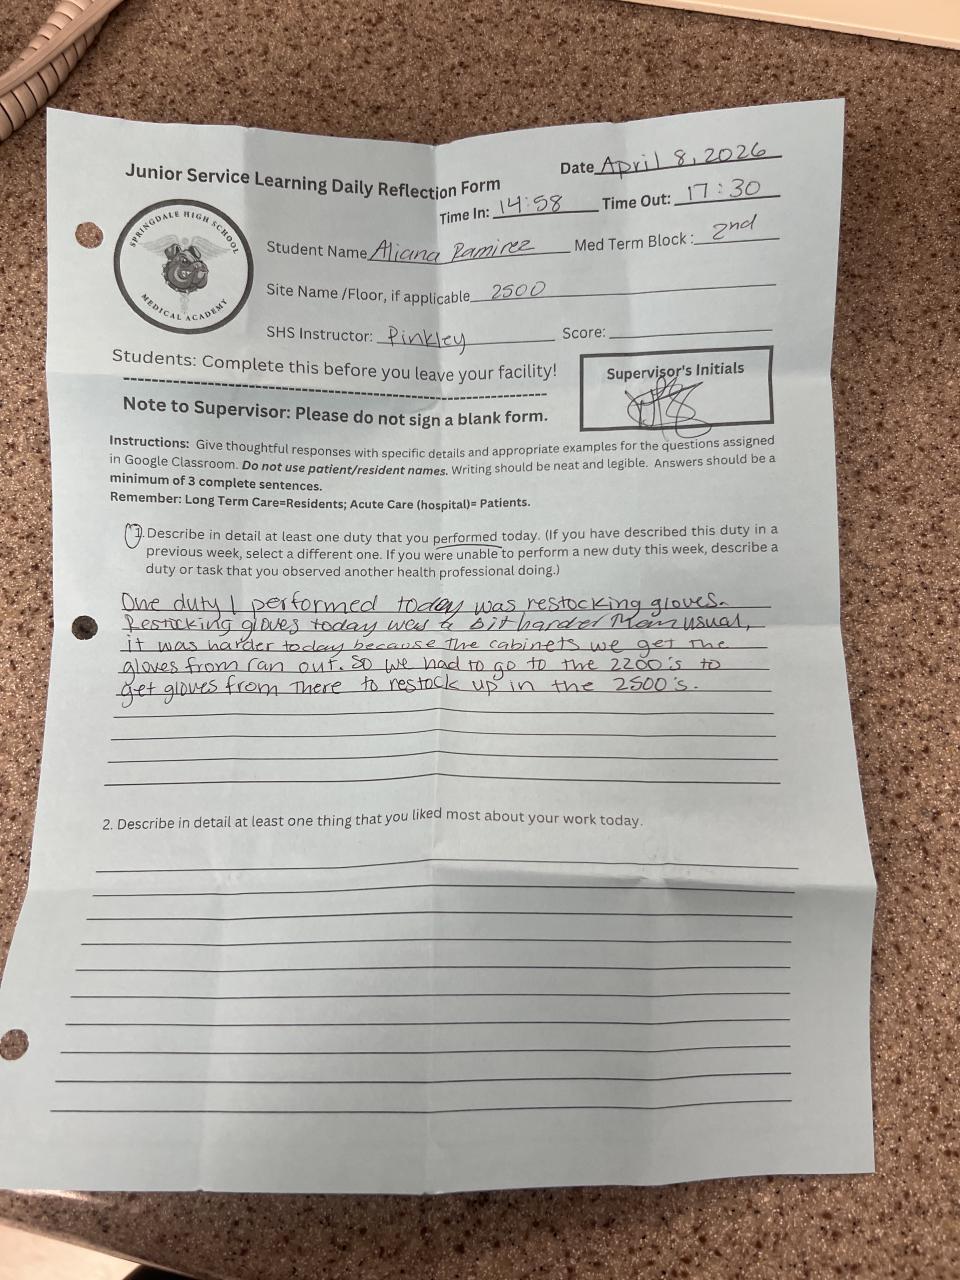 Junior Service Learning Daily Reflection Form
Date April 8, 2026
Time In: 14:58 Time Out: 17:30
SPRINGDALE HIGH SCHOOL
MEDICAL ACADEMY
Student Name Aliana Ramirez Med Term Block: 2nd
Site Name /Floor, if applicable 2500
SHS Instructor: Pinkley Score:
Students: Complete this before you leave your facility!
Supervisor's Initials
Note to Supervisor: Please do not sign a blank form.
Instructions: Give thoughtful responses with specific details and appropriate examples for the questions assigned
in Google Classroom. Do not use patient/resident names. Writing should be neat and legible. Answers should be a
minimum of 3 complete sentences.
Remember: Long Term Care=Residents; Acute Care (hospital)= Patients.
1. Describe in detail at least one duty that you performed today. (If you have described this duty in a
previous week, select a different one. If you were unable to perform a new duty this week, describe a
duty or task that you observed another health professional doing.)
One duty I performed today was restocking gloves.
Resticking gloves today was a bit harder than usual,
it was harder today because the cabinets we get the
gloves from ran out. So we had to go to the 2200's to
get gloves from there to restock up in the 2500's.
2. Describe in detail at least one thing that you liked most about your work today.